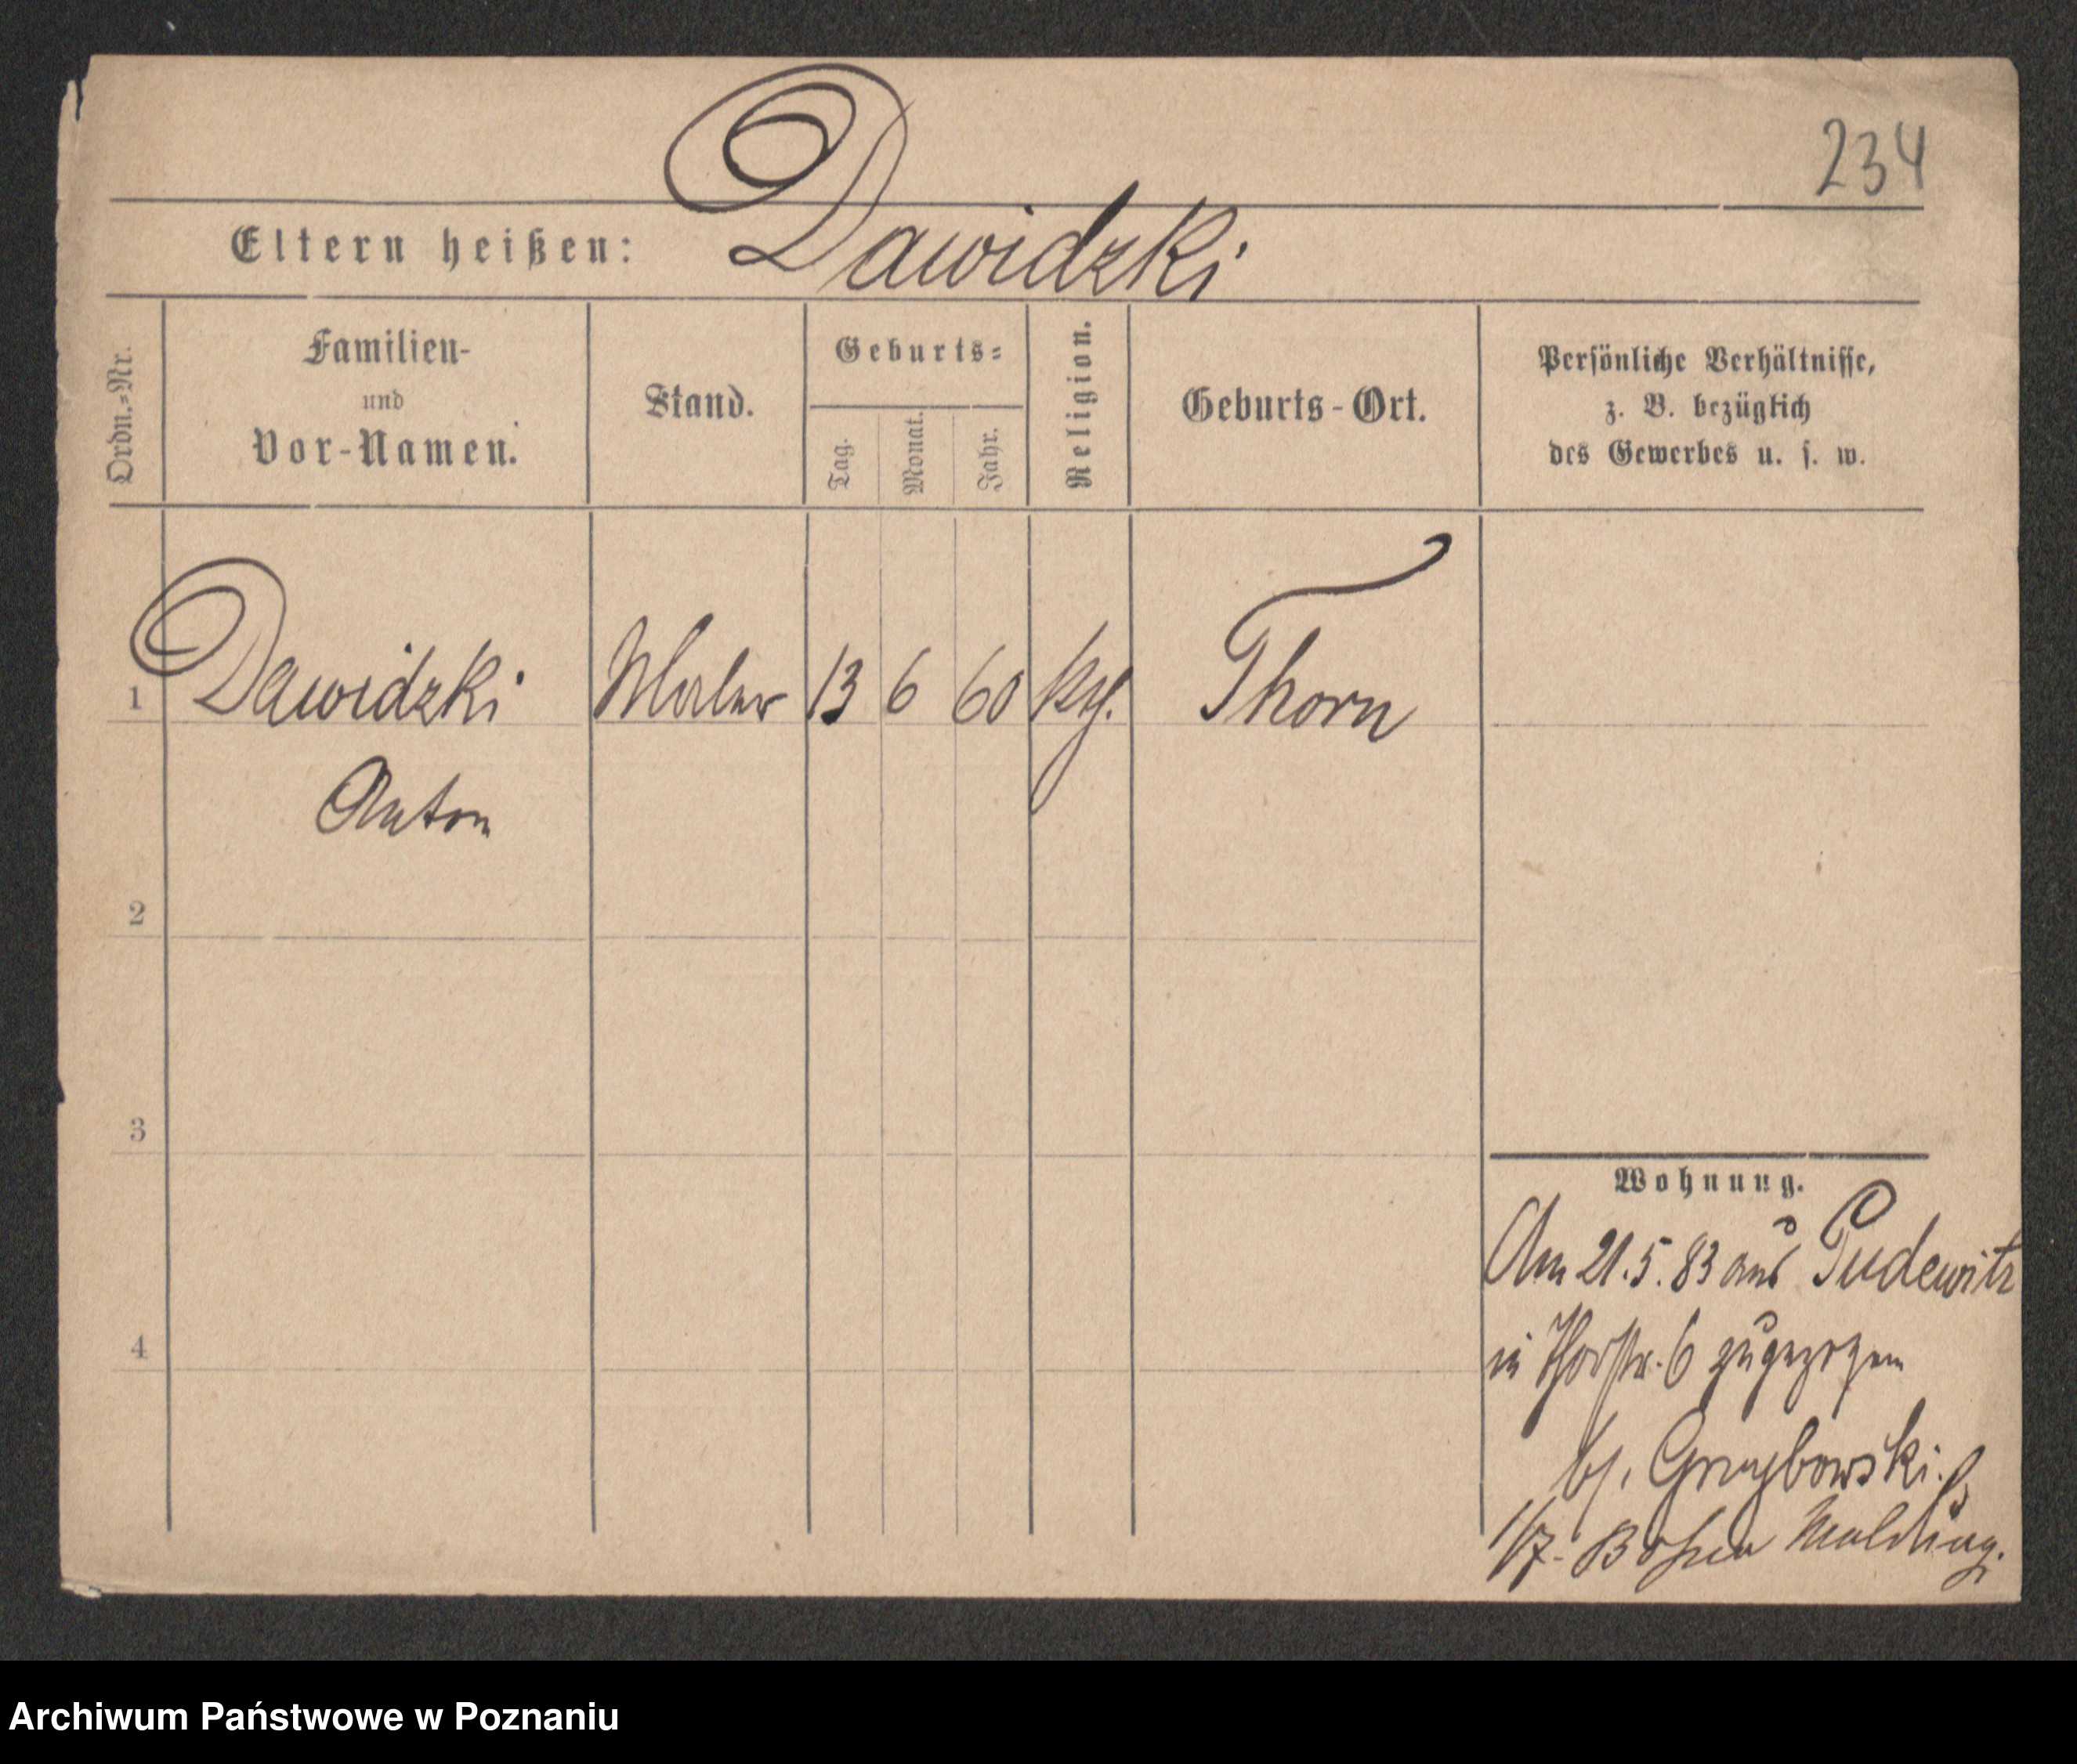 234
Eltern heißen: Dawidzki
Ordn.=Nr.
Familien-
und
Vor-Namen.
Stand.
Geburts=
Tag.
Monat.
Jahr.
Religion.
Geburts-Ort.
Persönliche Verhältnisse,
z. B. bezüglich
des Gewerbes u. s. w.
1 Dawidzki Maler 13 6 60 Thorn
Anton
2
3
4
Wohnung.
Am 21.5.83 aus Pudewitz
in 6 zugezogen
bj. Grzybowski.
1/7. Meldung.
Archiwum Państwowe w Poznaniu